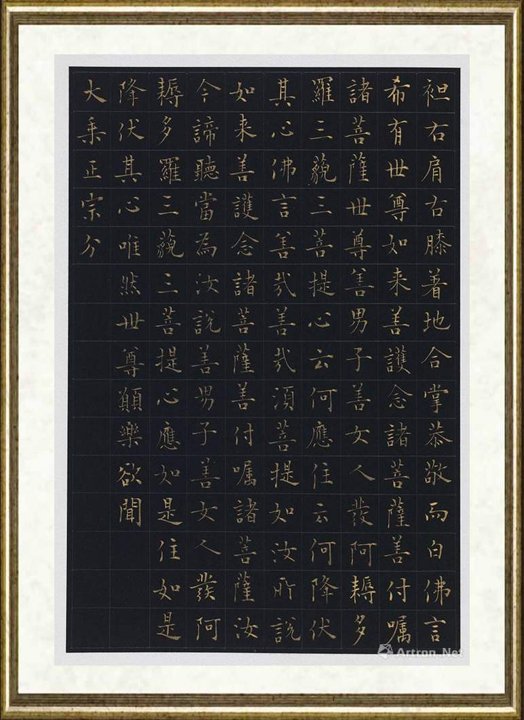 袒右肩右膝着地合掌恭敬而白佛言
希有世尊如来善護念諸菩薩善付嘱
諸菩薩世尊善男子善女人發阿耨多
羅三藐三菩提心云何應住云何降伏
其心佛言善哉善哉湏菩提如汝所說
如来善護念諸菩薩善付嘱諸菩薩汝
今諦聽當為汝說善男子善女人發阿
耨多羅三藐三菩提心應如是住如是
降伏其心唯然世尊願樂欲聞
大乗正宗分
Artron.Net